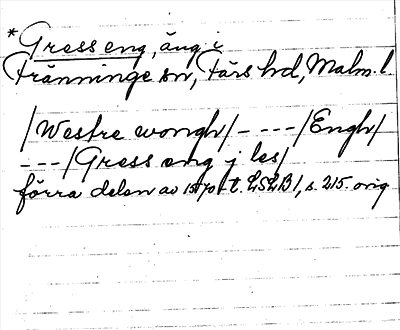 *Gress eng, äng i
Tränninge sn, Färs hd, Malm. l.
/Westre wongh/ - - - - /Engh/
- - - /Gress eng j les/
förra delen av 1570-t. LSLB 1, s. 215. orig